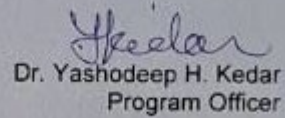 YKedar
Dr. Yashodeep H. Kedar
Program Officer